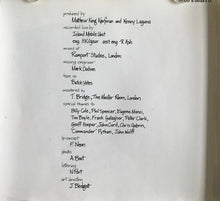 produced by
Matthew King Kaufman and Kenny Laguna
recorded live by
Island Mobile Unit
eng.
mixed at
Rampart Studios, London
mixing engineer
Mark Dodson
tape op
Butch Yates
mastered by
T. Bridge, The Master Room, London
special thanks to
Billy Cole, Phil Spencer, Eugene Manzi,
Tim Boyle, Frank Gallagher, Peter Clark,
Geoff Hooper, John Curd, Chris Gabrin,
Commander Python, John Wolff
broadcast
F. Neon
photo
A. Beat
lettering
art direction
J. Blodgett